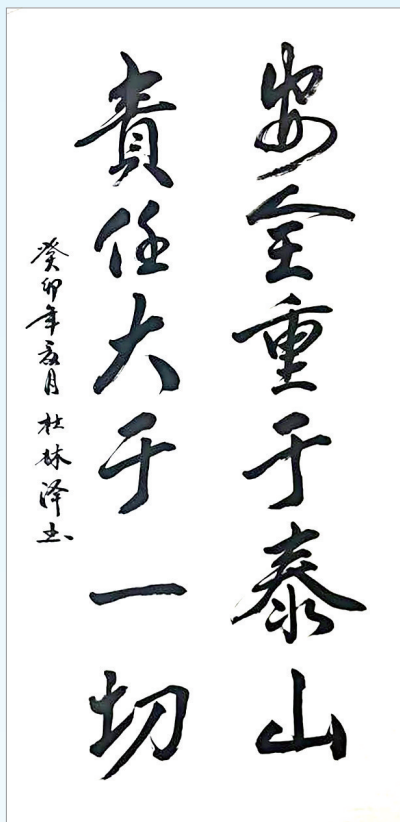 安全重于泰山
責任大于一切
癸卯年夏月杜林澤书